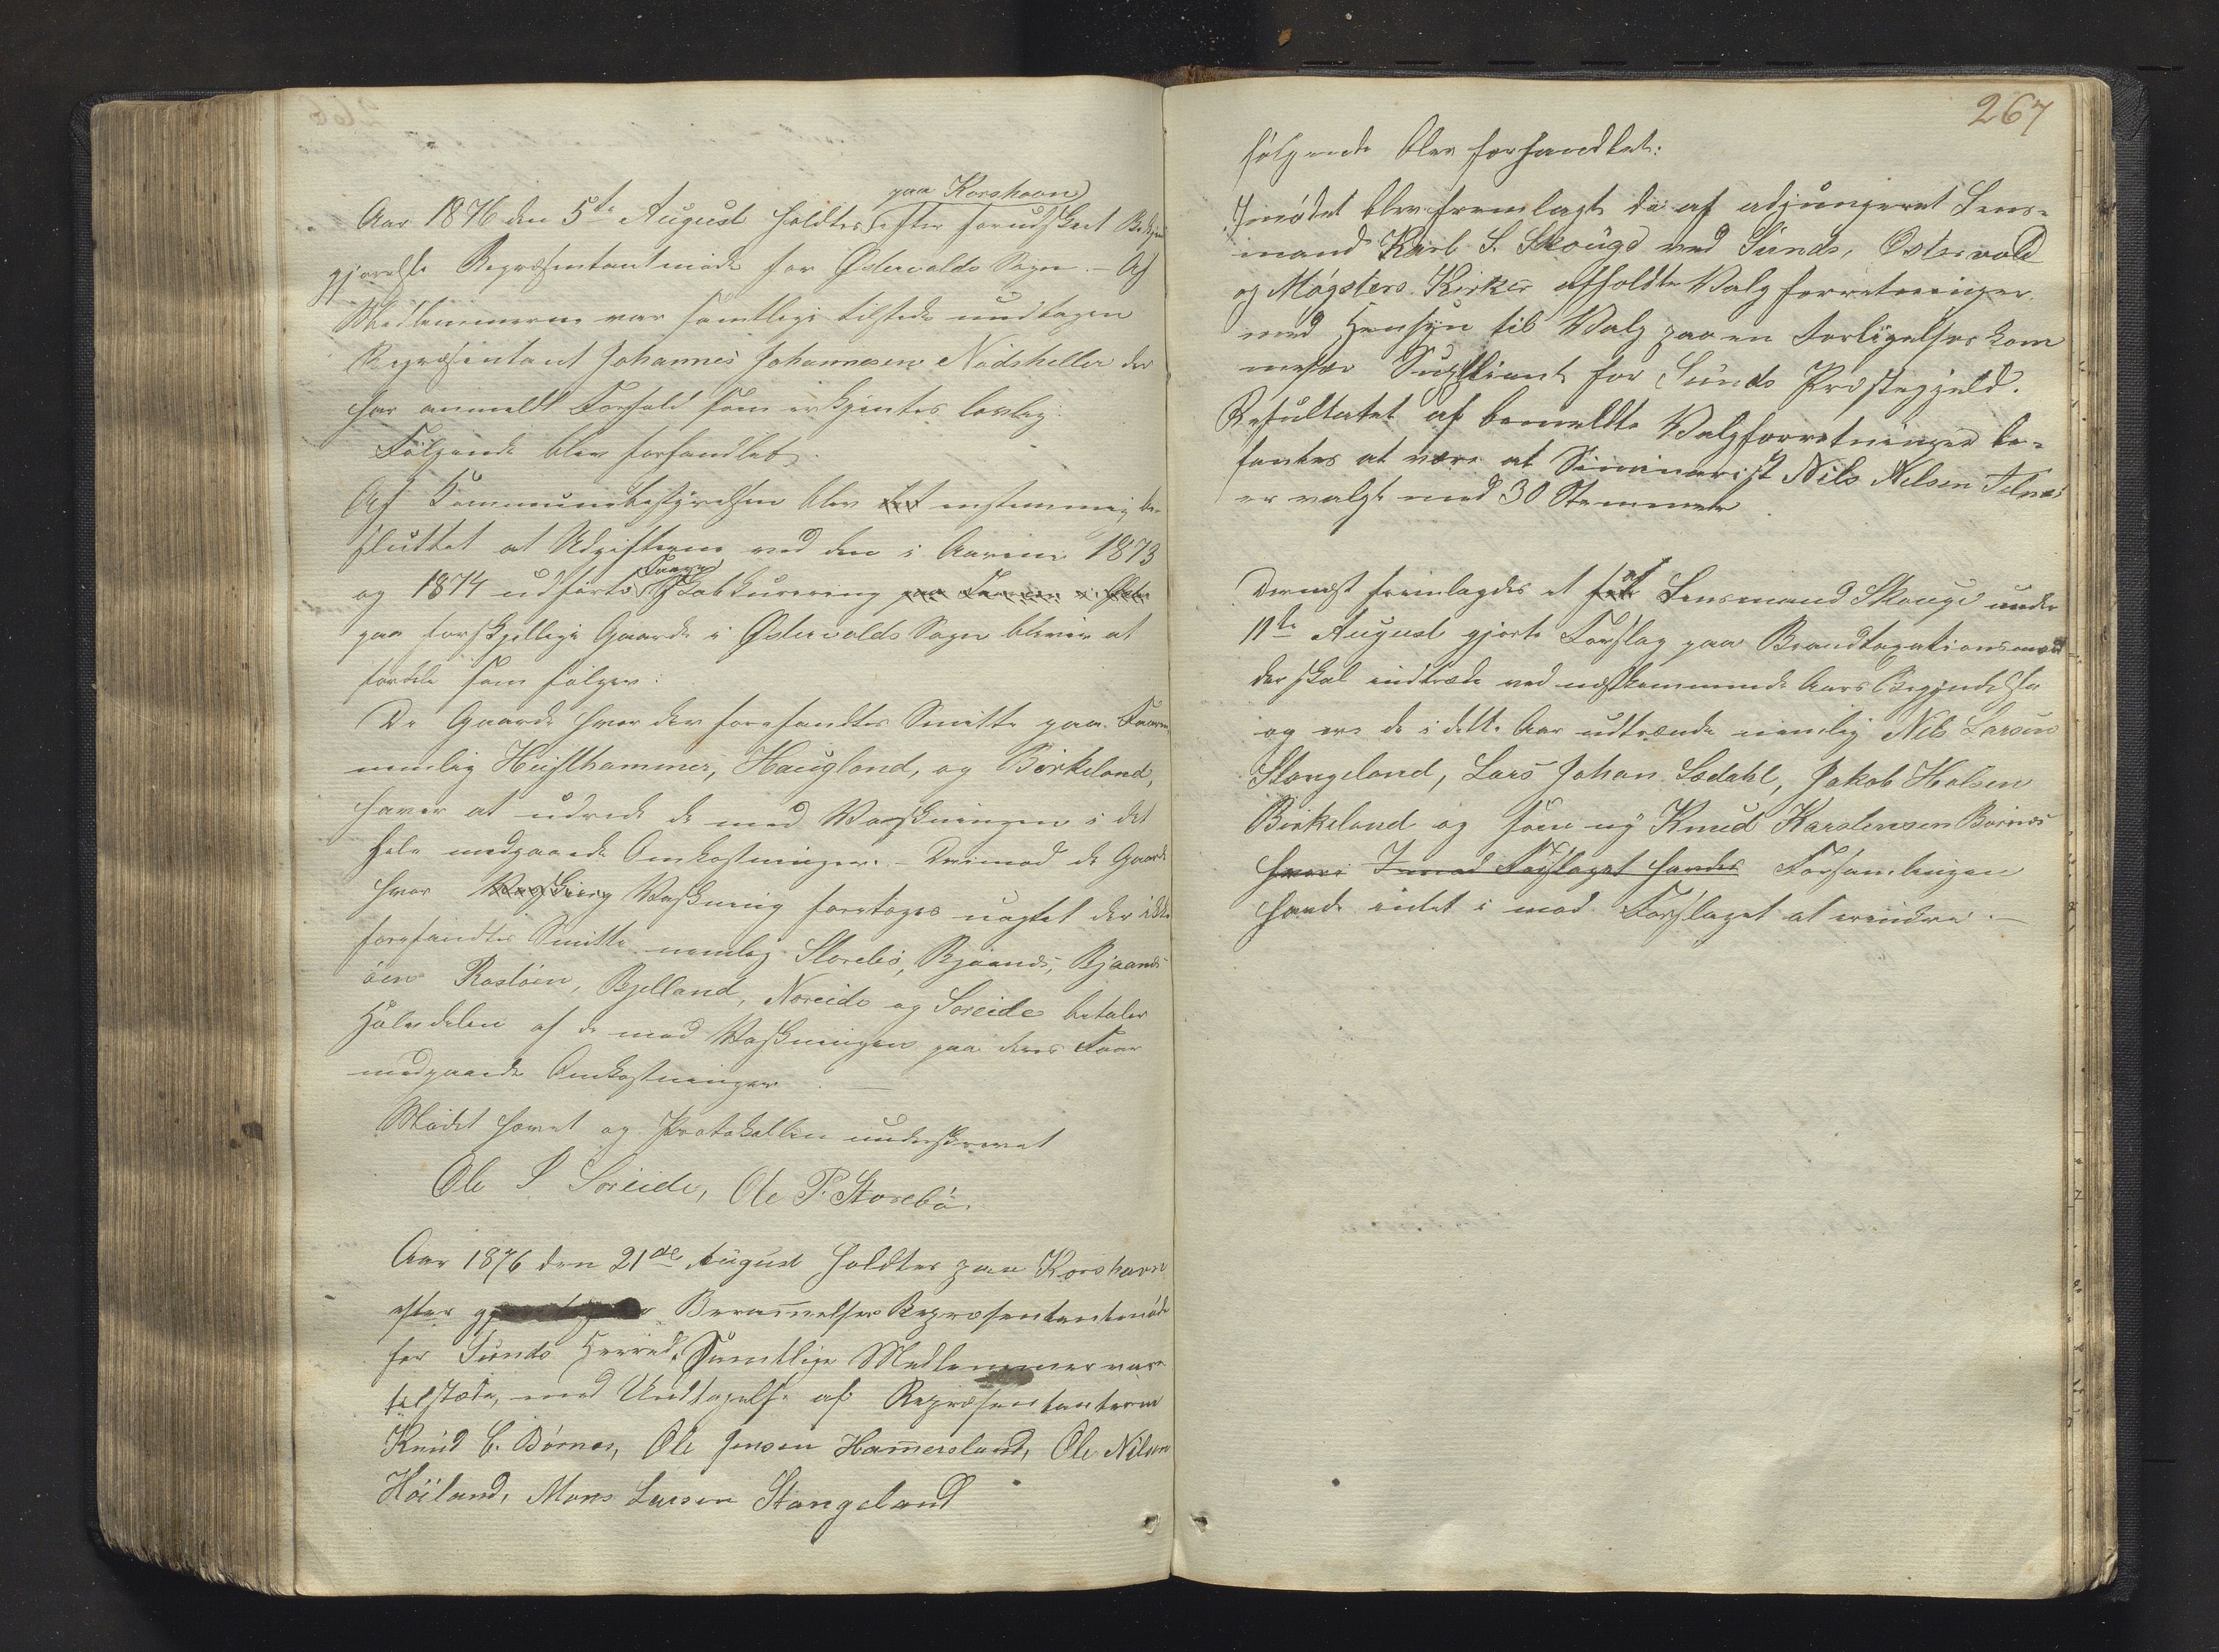 paa Korshavn
Aar 1876 den 5te August holdtes efter forudskeet Bekjend
gjørelse Repræsentantmøde for Østervolds Sogn. – Af
Medlemmerne var samtlige tilstede undtagen
Repræsentant Johannes Johannesen Nødsheller der
har anmeldt Forfald som erkjentes lovlig.
Følgende blev forhandlet.
Af Kommunebestyrelsen blev det enstemmig be-
sluttet at Udgifterne ved den i Aarene 1873
Faare
og 1874 udførte Skabkurering paa
paa forskjellige Gaarde i Østervolds Sogn bliver at
fordele som følger:
De Gaarde hvor der forefandtes Smitte paa Faarene
nemlig Heisthammer, Haugland, og Birkeland,
haver at udrede de med Vaskningen i det
hele medgaaede Omkostninger. – Derimod de Gaarde
hvor Vaskning Vaskning foretoges uagtet der ikke
forefandtes Smitte nemlig Storebø, Bjaanæs, Bjaanæs
øen Rostøen, Bjelland, Noreide og Søreide betaler
Halvdelen af de med Vaskningen paa deres Faar
medgaaede Omkostninger. —
Mødet hævet og Protokollen underskrevet
Ole S Søreide, Ole P. Storebø.
Aar 1876 den 21de August holdtes paa Korshavn
efter Berammelse Repræsentantmøde
for Sunds Herred. Samtlige Medlemmer vare
tilstede, med Undtagelse af Repræsentanterne
Knud C. Børnes, Ole Jensen Hammersland, Ole Nilsen
Høiland, Mons Larsen Stangeland
267
følgende blev forhandlet:
I mødet blev fremlagt de af adjungeret Lens-
mand Karl S. Skouge ved Sunds, Østervold
og Møgsters Kirker afholdte Valgforretninger
med Hensyn til Valg paa en Forligelseskom
missær Supliant for Sunds Præstegjeld.
Resultatet af bemeldte Valgforretninger be-
fantes at være at Seminarist Nils Nilsen Telnæs
er valgt med 30 Stemmer
Dernæst fremlagdes et af Lensmand Skouge under
11te August gjorte Forslag paa Brandtaxationsmænd
der skal indtræde ved næstkommende Aars Begyndelse
og ere de i dette Aar udtrædende nemlig Nils Larsen
Stangeland, Lars Johan Lædahl, Jakob Halsen
Birkeland og som ny Knud Karstensen Børnæs
hvori Imod Forslaget havde Forsamlingen
havde intet i mod Forslaget at erindre. —